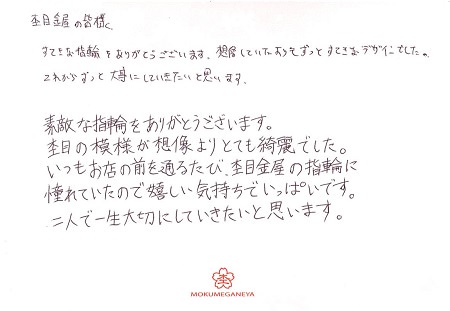 杢目金屋の皆様へ
すてきな指輪をありがとうございます。想像していたよりもずっとすてきなデザインでした。
これからずっと大事にしていきたいと思います。
素敵な指輪をありがとうございます。
杢目の模様が想像よりとても綺麗でした。
いつもお店の前を通るたび、杢目金屋の指輪に
憧れていたので嬉しい気持ちでいっぱいです。
二人で一生大切にしていきたいと思います。
杢
MOKUMEGANEYA